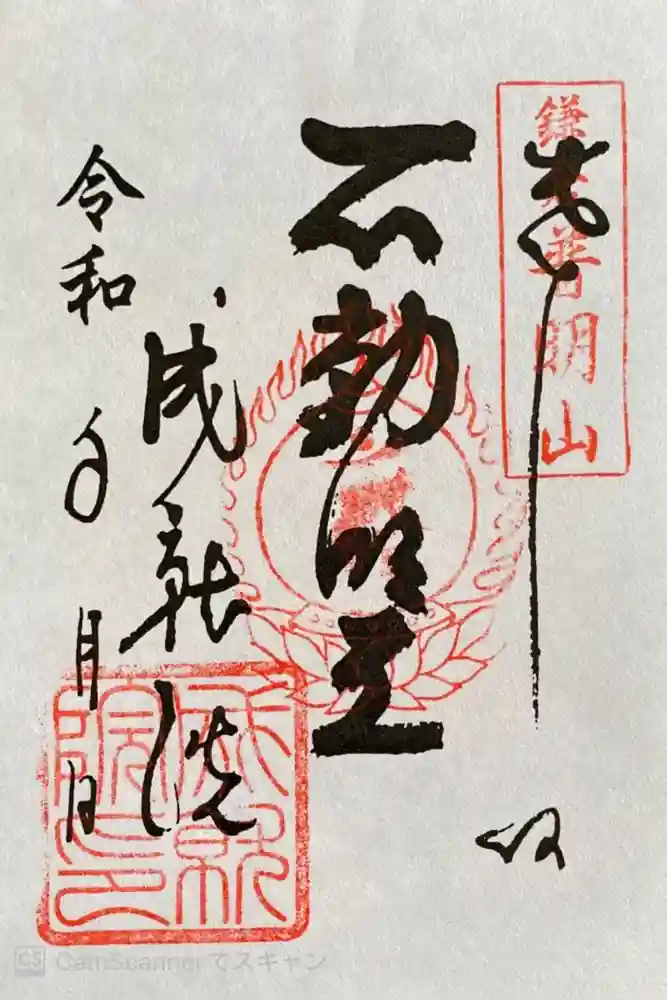 奉拝
鎌倉普明山
不動明王
成就院
令和 年 月 日
成就院印
CS CamScannerでスキャン